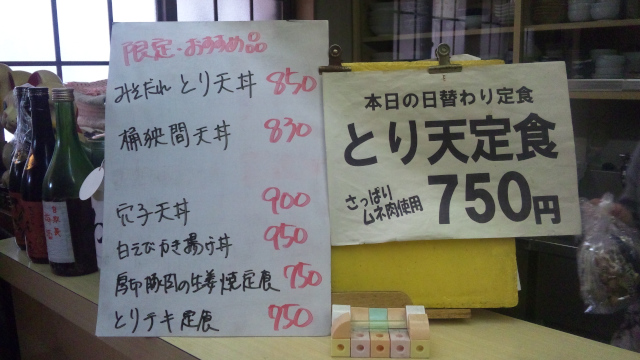 限定・おすすめ品
みそだれ とり天丼 850
桶狭間天丼 830
穴子天丼 900
白えびかき揚げ丼 950
厚切豚肉の生姜焼定食 750
とりテキ定食 750
本日の日替わり定食
とり天定食
さっぱり
ムネ肉使用
750円